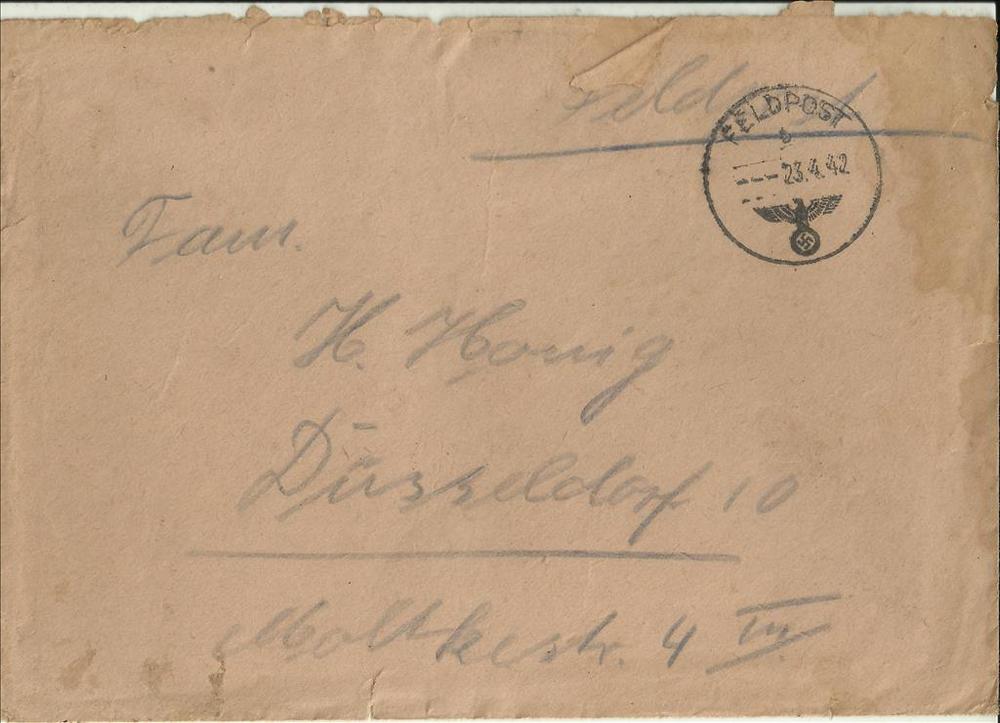 Feldpost
FELDPOST
b
23.4.42
Fam.
H. Honig
Düsseldorf 10
Moltkestr. 4 III